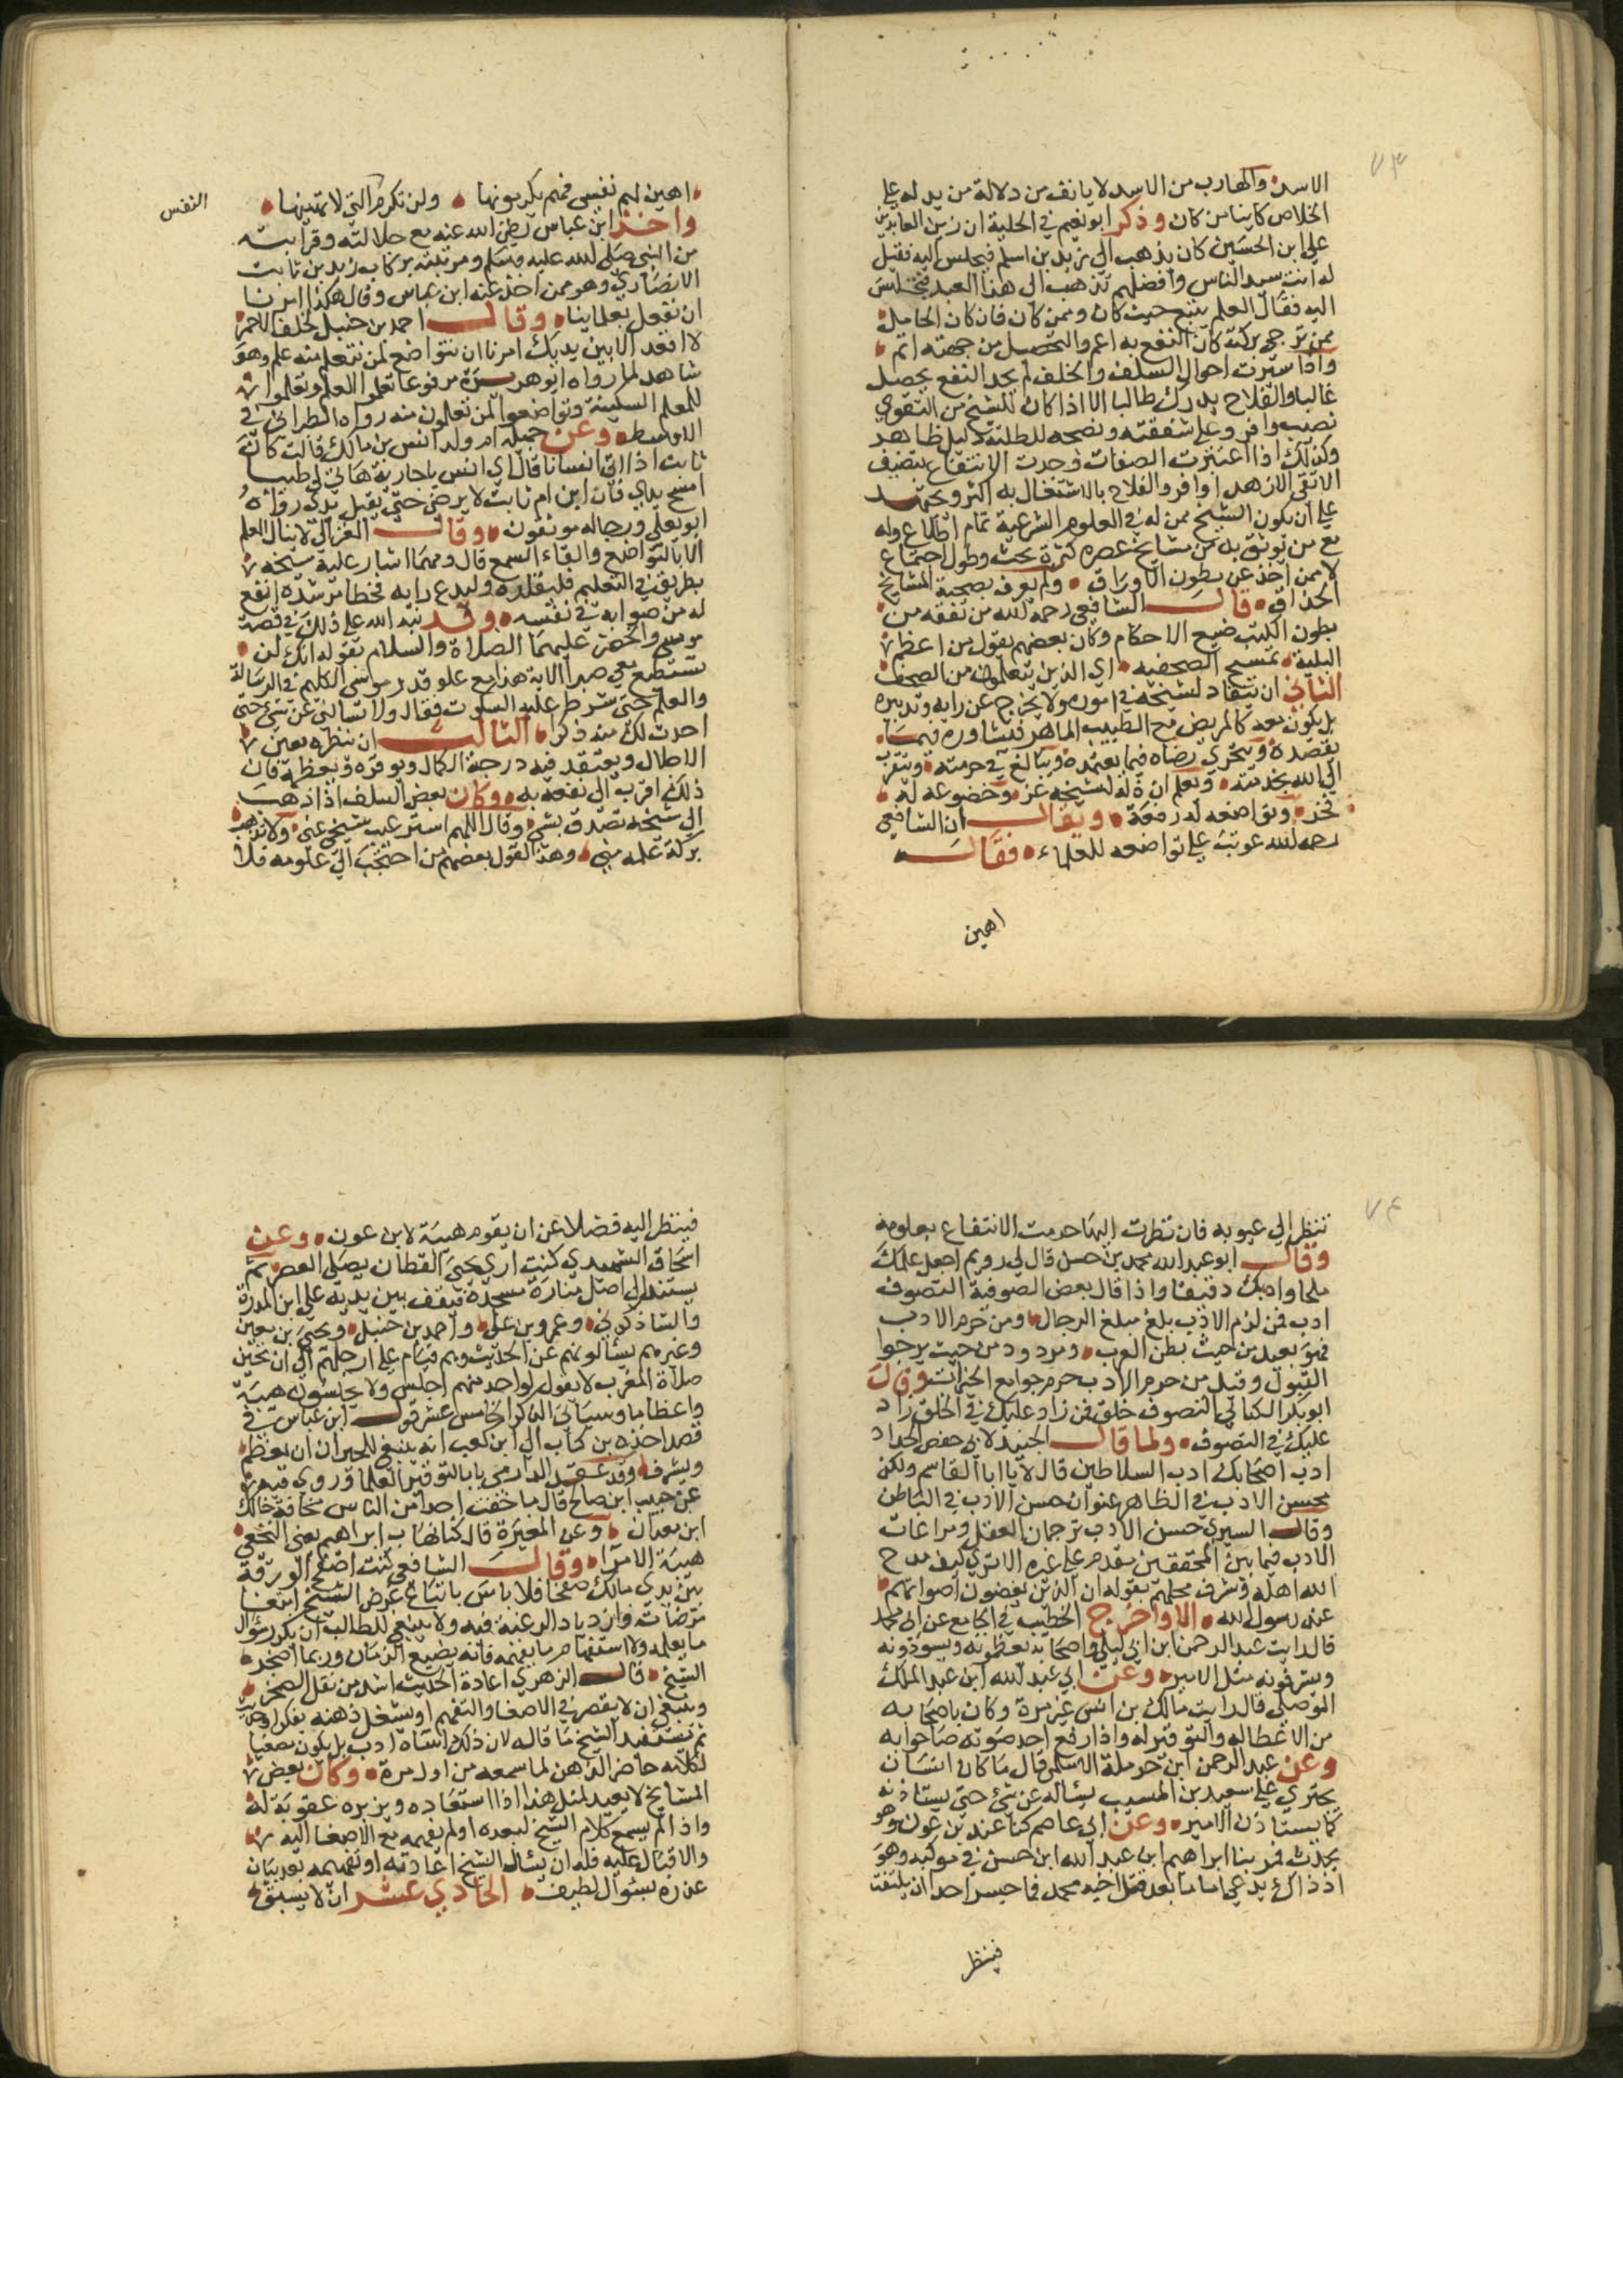 ٧٣
الاسد والهارب من الاسد لا يانف من دلالة من يدله على
الخلاص كاينا من كان وذكر ابو نعيم في الحلية ان زين العابدين
علي ابن الحسين كان يذهب الى زيد بن اسلم فيجلس اليه فقيل
له انت سيد الناس وافضلهم تذهب الى هذا العبد فتجلس
اليه فقال العلم يتبع حيث كان وممن كان فان كان الحامل
ممن ترجى بركته كان النفع به اعم والتحصيل من جهته اتم
واذا سبرت احوال السلف والخلف لم تجد النفع يحصل
غالبا والفلاح يدرك طالبا الا اذا كان للشيخ من التقوى
نصيب وافر وعلى شفقته ونصحه للطلبة دليل ظاهر
وكذلك اذا اعتبرت المصنفات وجدت الانتفاع بتصنيف
الاتقى الازهد اوفر والفلاح بالاشتغال به اكثر ويجتهد
على ان يكون الشيخ ممن له في العلوم الشرعية تمام اطلاع وله
مع من يوثق به من مشايخ عصره كثرة بحث وطول اجتماع
لا ممن اخذ عن بطون الاوراق ولم يعرف بصحبة المشايخ
الحذاق قال الشافعي رحمه الله من تفقه من
بطون الكتب ضيع الاحكام وكان بعضهم يقول من اعظم
البلية تمشيخ الصحفية اي الذين يتعلمون من الصحف
الثاني ان ينقاد لشيخه في اموره ولا يخرج عن رايه وتدبيره
بل يكون معه كالمريض مع الطبيب الماهر فيشاوره فيما
يقصده ويتحرى رضاه فيما يعتمده ويبالغ في حرمته ويتقرب
الى الله بخدمته ويعلم ان ذله لشيخه عز وخضوعه له
فخر وتواضعه له رفعة ويقال ان الشافعي
رحمه الله عوتب على تواضعه للعلماء فقال
اهين
اهين لهم نفسي فهم يكرمونها ولن تكرم التي لا تهينها
النفس
واخذ ابن عباس رضي الله عنه مع جلالته وقرابته
من النبي صلى الله عليه وسلم ومرتبته بركاب زيد بن ثابت
الانصاري وهو ممن اخذ عنه ابن عباس وقال هكذا امرنا
ان نفعل بعلماينا وقال احمد بن حنبل لخلف الاحمر
لا اقعد الا بين يديك امرنا ان نتواضع لمن نتعلم منه علم وهو
شاهد لما رواه ابو هريرة مرفوعا تعلموا العلم وتعلموا
للعلم السكينة وتواضعوا لمن تعلمون منه رواه الطبراني في
الاوسط وعن جميلة ام ولد انس بن مالك قالت كان
ثابت اذا اتى انسا قال اي انس يا جارية هاتي لي طيبا
امسح يداي فان ابن ام ثابت لا يرضى حتى يقبل يدي رواه
ابو يعلى ورجاله موثقون وقال الغزالي لا ينال العلم
الا بالتواضع والقاء السمع قال ومهما اشار عليه شيخه
بطريق في التعليم فليقلده وليدع رايه فخطا مرشده انفع
له من صوابه في نفسه وقد نبه الله على ذلك في قصة
موسى والخضر عليهما الصلاة والسلام بقوله انك لن
تستطيع معي صبرا الاية هذا مع علو قدر موسى الكليم في الرسالة
والعلم حتى شرط عليه السكوت فقال ولا تسالني عن شيء حتى
احدث لك منه ذكرا الثالث ان ينظره بعين
الاجلال ويعتقد فيه درجة الكمال ويوقره ويعظمه فان
ذلك اقرب الى نفعه به وكان بعض السلف اذا ذهب
الى شيخه تصدق بشيء وقال اللهم استر عيب شيخي عني ولا تذهب
بركة علمه مني وهذا لقول بعضهم من احتجب الى علومه فلا
٧٤
تنظر الى عيوبه فان نظرت اليها حرمت الانتفاع بعلومه
وقال ابو عبد الله محمد بن حسن قال لي رويم اجعل علمك
ملحا وادبك دقيقا واذا قال بعض الصوفية التصوف
ادب فمن لزم الادب بلغ مبلغ الرجال ومن حرم الادب
فهو بعيد من حيث يظن القرب ومردود من حيث يرجوا
القبول وقيل من حرم الادب حرم جوامع الخيرات وقال
ابو بكر الكتاني التصوف خلق فمن زاد عليك في الخلق زاد
عليك في التصوف ولما قال الجنيد لابي حفص الحداد
ادب اصحابك ادب السلاطين قال لا يا ابا القاسم ولكن
بحسن الادب في الظاهر عنوان حسن الادب في الباطن
وقال السري حسن الادب ترجمان العقل ومراعات
الادب فيما بين المحققين مقدم على غيره الا ترى كيف مدح
الله اهله وشرف محلهم بقوله ان الذين يغضون اصواتهم
عند رسول الله الا واخرج الخطيب في الجامع عن ابي محمد
قال رايت عبد الرحمن ابن ابي ليلى واصحابه يعظمونه ويسودونه
ويشرفونه مثل الامير وعن ابي عبد الله ابن عبد الملك
الموصلي قال رايت مالك بن انس غير مرة وكان باصحابه
من الاعظام له والتوقير له واذا رفع احد صوته صاحوا به
وعن عبد الرحمن ابن حرملة الاسلمي قال ما كان انسان
يجتري على سعيد بن المسيب يساله عن شيء حتى يستاذنه
كما يستاذن الامير وعن ابي عاصم كنا عند بن عون وهو
يحدث فمر بنا ابراهيم ابن عبد الله ابن حسن في موكبه وهو
اذ ذاك يدعى اماما بعد قتل اخيه محمد فما جسر احد ان يلتفت
فينظر
فينظر اليه فضلا عن ان يقوم هيبة لابن عون وعن
اسحاق الشهيدي كنت ارى يحيى القطان يصلي العصر ثم
يستند الى اصل منارة مسجده فيقف بين يديه علي ابن المديني
والشاذكوني وعمرو بن علي واحمد بن حنبل ويحيى بن معين
وغيرهم يسالونهم عن الحديث وهم قيام على ارجلهم الى ان تحين
صلاة المغرب لا يقول لواحد منهم اجلس ولا يجلسون هيبة
واعظاما وسياتي الذكر الخامس عشر قول ابن عباس في
قصد اخذه بركاب ابي ابن كعب انه ينبغي للحبر ان يعظم
ويشرف وقد عقد الدارمي بابا لتوقير العلما وروي فيه
عن حبيب ابن صالح قال ما خفت احدا من الناس مخافة خالد
ابن معدان وعن المغيرة قال كنا نهاب ابراهيم يعني النخعي
هيبة الامراء وقال الشافعي كنت اصفح الورقة
بين يدي مالك صفحا فلا باس باتباع غرض الشيخ ابتغا
مرضاته وازدياد الرغبة فيه ولا ينبغي للطالب ان يكرر سؤال
ما يعلمه ولا استفهام ما يفهمه فانه يضيع الزمان وربما اضجر
الشيخ قال الزهري اعادة الحديث اشد من نقل الصخر
وينبغي ان لا يقصر في الاصغا والتفهم او يشغل ذهنه بفكر او حديث
ثم يستعيد الشيخ ما قاله لان ذلك اساة ادب بل يكون مصغيا
لكلامه حاضر الذهن لما سمعه من اول مرة وكان بعض
المشايخ لا يعيد لمثل هذا اذا استعاده ويزبره عقوبة له
واذا لم يسمع كلام الشيخ لبعده او لم يفهمه مع الاصغا اليه
والاقبال عليه فله ان يسال الشيخ اعادته او تفهيمه بعد بيان
عذره بسؤال لطيف الحادي عشر ان لا يسبق